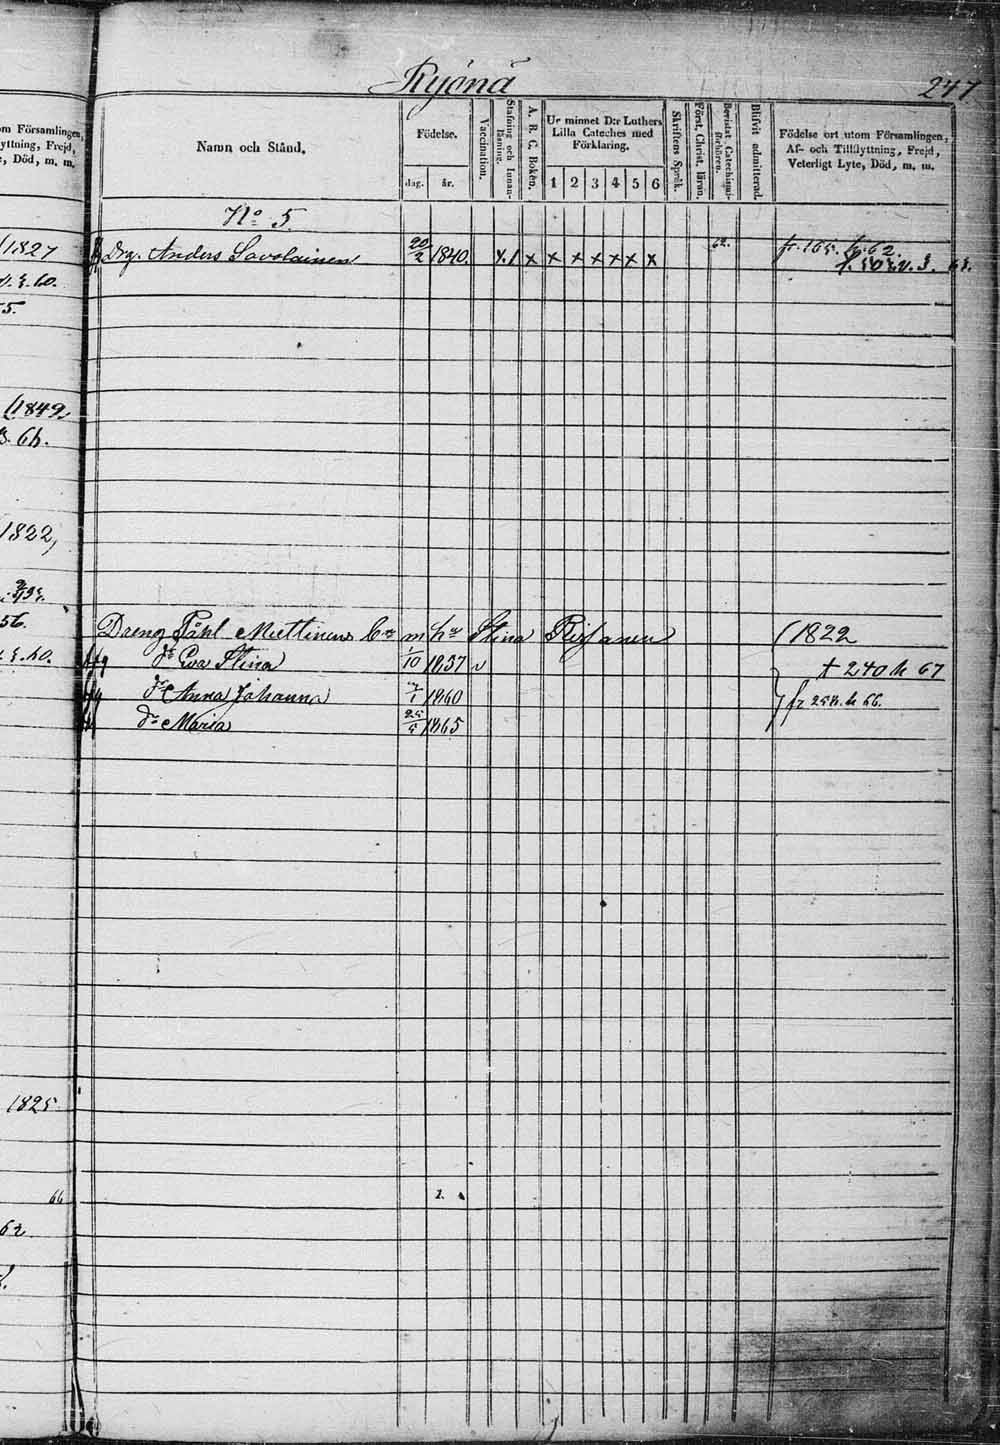 Ryönä
247
om Församlingen,
yttning, Frejd,
e, Död, m. m.
Namn och Stånd.
Födelse.
dag. år.
Vaccination.
Stafning och Innanläsning.
A. B. C. Boken.
Ur minnet D:r Luthers
Lilla Cateches med
Förklaring.
1 2 3 4 5 6
Skriftens Språk.
Först. Christ. läran.
Bevistat Catechismiförhören.
Blifvit admitterad.
Födelse ort utom Församlingen,
Af- och Tillflyttning, Frejd,
Veterligt Lyte, Död, m. m.
No 5
(1827
Drg. Anders Savolainen 20/2 1840. x x x x x x x 62. fr. 165. 62.
60.
5.
(1849
64.
1822,
56.
Dreng Påhl Miettinens m Stina (1822
60.
dr Eva Stina 1/10 1857 v † 240 67
dr Anna Johanna 1860
fr 258. 66.
dr Maria 25/5 1865
1825
66
1.
62